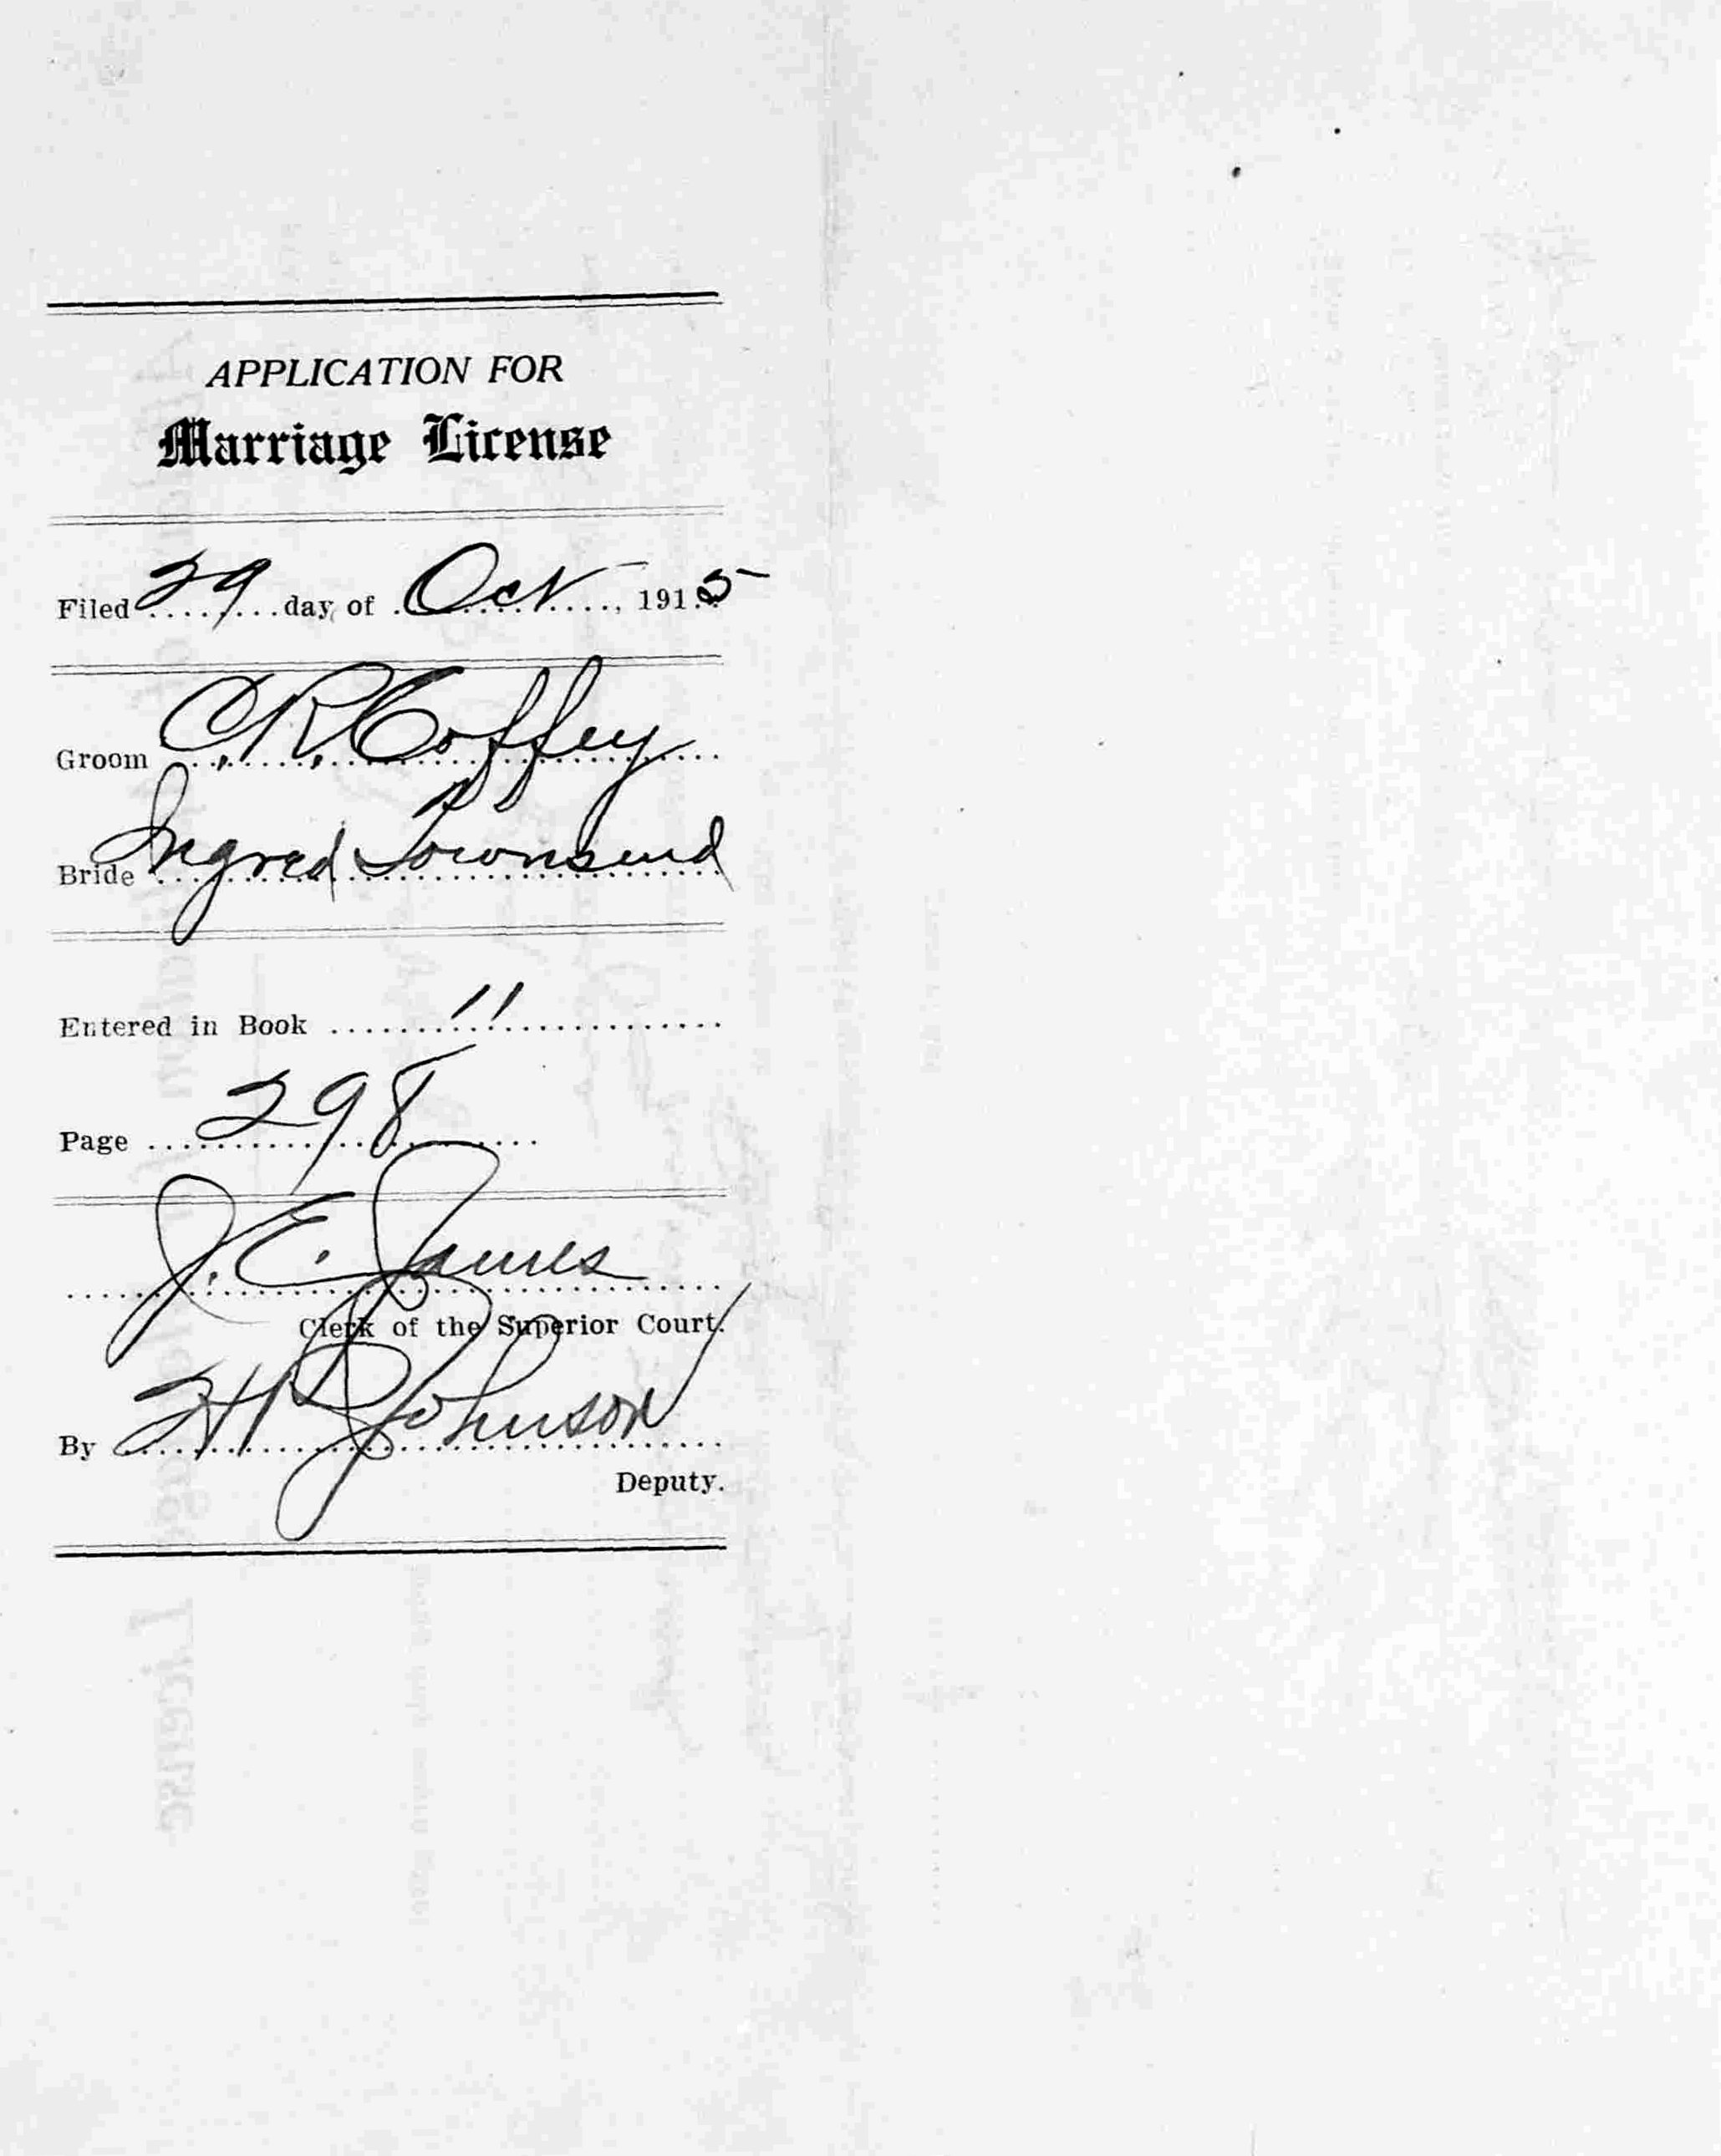 APPLICATION FOR
Marriage License
Filed 29 day of Oct, 1915
Groom C. R. Coffey
Bride Ingred Townsend
Entered in Book 11
Page 298
J. E. James
Clerk of the Superior Court.
By Johnson
Deputy.